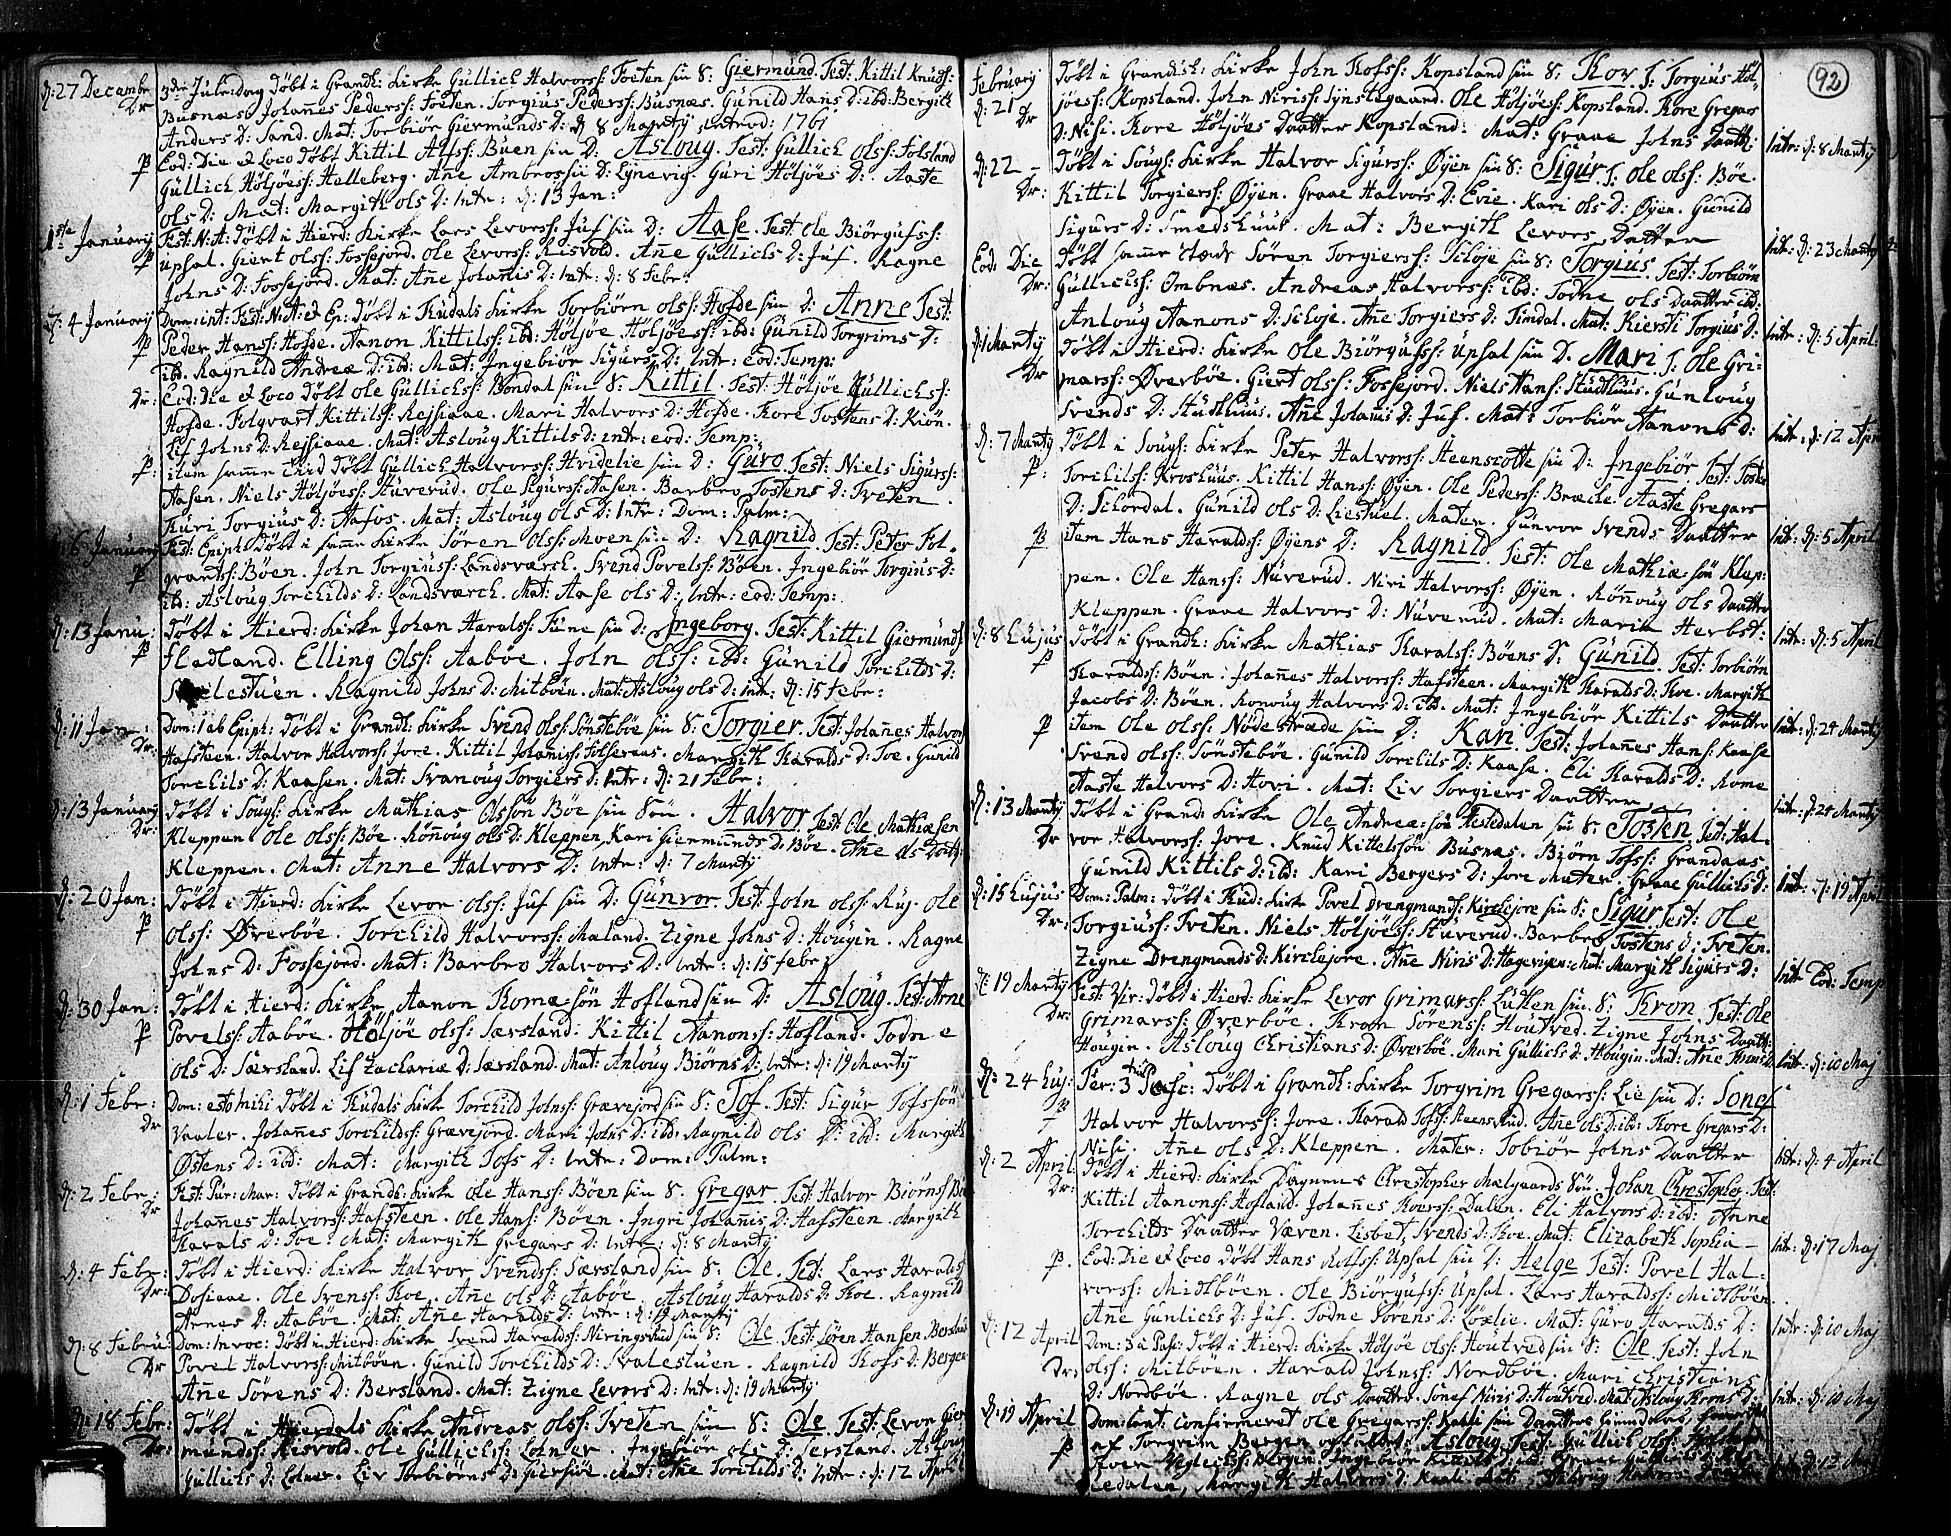 d: 27 Decembr 3die Jule-dag Døbt i Grandh: Kirke Gullich Halvors: Foeten sin S: Giermund. Test: Kittil Knuds:
Dr Busnæs. Johannes Peders: Foeten. Torgius Peders: Busnæs. Gunild Hans D: ibd: Bergith
Anders D: Sand. Mat: Torbiør Giermunds D: d 8 Martÿ introd: 1761
P Eod: Die et Loco Døbt Kittil Alfs: Buen sin D: Asloug. Test: Gullich Ols: Folsland
Gullich Höljöes: Helleberg. Ane Ambrosii D: Lÿnevig. Guri Höljöes D: Aaste
Ols D: Mat: Margith Ols D: Intr: d: 13 Jan:
1ste January Fest: N: A: Døbt i Hierd: Kirke Lars Levors: Juf sin D: Aase. Test: Ole Biörgufs:
P Upsal. Giert Ols: Fossejord. Ole Levors: Risvold. Añe Gullichs D: Juf. Ragne
Johns D: Fossejord. Mat: Añe Johanis D: Intr: d: 8 Febr:
d: 4 January Dom: int: Fest: N: A: et Ep: Døbt i Tudals Kirke Torbiörn Ols: Hofde sin D: Anne Test:
P Peder Hans: Hofde. Aanon Kittils: ibd: Höljöe Höljöes: ibd: Gunild Torgrims D:
ibd. Ragnild Andreæ D: ibd: Mat: Ingebiör Sigurs D: Intr: eod: Temp:
Dr: Eod: Die et Loco Døbt Ole Gullichs: Bondal sin S: Kittil. Test: Höljöe Gullichs:
Hofde. Folqvart Kittils: Rejsiaae. Mari Halvors D: Hofde. Tore Tostens D: Kiön.
Lif Johns D: Rejsiaae. Mat: Asloug Kittils D: intr: eod: Temp:
P: item samme Tiid Døbt Gullich Halvors: Hvidelie sin D: Guro. Test: Niels Sigurs:
Aasen. Niels Höljöes: Stuverud. Ole Sigurs: Aasen. Barbro Tostens D: Tveten
Turi Torgius D: Aafos. Mat: Asloug Ols D: Intr: Dom: Palm:
6 January Fest: Epiph: Døbt i samme Kirke Sören Ols: Moen sin D: Ragnild. Test: Peter Fol-
P qvards: Böen. John Torgius: Landsværch. Svend Povels: Böen. Ingebiör Torgius D:
ibd: Asloug Torchilds D: Landsværch. Mat: Aase Ols D: Intr: eod: Temp:
d: 13 Janu: Døbt i Hierd: Kirke Johan Harals: Fune sin D: Ingeborg. Test: Kittil Giermunds
P Fladland. Elling Ols: Aaböe. John Ols: ibd: Gunild Torchilds D:
Ragnild Johns D: Mitböen. Mat: Asloug Ols D: Intr: d: 15 Febr:
d: 11 Jan: Dom: 1 ab Epiph: Døbt i Grandh: Kirke Svend Ols: Sönsteböe sin S: Torgier. Test: Johañes Halvors
Dr: Hafsteen. Halvor Halvors: Jore. Kittil Johanis: Margith Haralds D: Toe. Gunild
Torchils D: Kaasen. Mat: Svanoug Torgiers D: Intr: d: 21 Febr:
d: 13 January Døbt i Sougs: Kirke Mathias Olssön Böe sin Sön. Halvor. Test: Ole Mathiæsen
Dr: Kleppen Ole Ols: Böe. Röñoug Ols D: Kleppen. Kari Giermunds D: Böe. Añe Ols
Kleppen. Mat: Anne Halvors D: Intr: d: 7 Martÿ
d: 20 Jan: Døbt i Hierd: Kirke Levor Ols: Juf sin D: Gunvor. Test: John Ols: Ruÿ. Ole
P Ols: Øverböe. Torchild Halvors: Mæland. Zigne Johns D: Hougin. Ragne
Johns D: Fossejord. Mat: Barbro Halvors D: Intr: d: 15 Febr:
d: 30 Jan: Døbt i Hierd: Kirke Aanon Tomæ-sön Hofland sin D: Asloug. Test: Arne
P Povels: Aaböe. Höljöe Ols: Særsland: Kittil Aanons: Hofland. Todne
Ols D: Særsland. Lif Zachariæ D: Særsland. Mat: Anloug Biörns D: Intr: d: 19 Martÿ
d: 1 Febr: Dom: esto mihi Døbt i Tudals Kirke Torchild Johns: Grævejord sin S: Tof. Test: Sigur Tofssön
Dr Vaaler. Johañes Torchilds: Grævejord. Mari Johns D: ibd: Ragnild Ols D: ibd: Margith
Østens D: ibd: Mat: Margith Tofs D: Intr: Dom: Palm:
d: 2 Febr: Fest: Pur: Mar: Døbt i Grandh: Kirke Ole Hans: Böen sin S: Gregar. Test: Halvor Biörns:
Dr Johañes Halvors: Hafsteen. Ole Hans: Böen. Ingri Johañis D: Hafsteen. Margith
Harals D: Toe. Mat: Margith Gregars D: Intr: d: 8 Martÿ
d: 4 Febr: Døbt i Hierd: Kirke Halvor Svends: Særsland sin S: Ole. Test: Lars Harals:
Dr: Dosiaae. Ole Svens: Toe. Añe Ols D: Aaböe. Asloug Haralds D: Toe. Ragnild
Arnes D: Aaböe. Mat: Añe Haralds D: Intr: d: 19 Martÿ
d: 8 Februa: Dom: Invoc: Døbt i Hierd: Kirke Svend Haralds: Niringsrud sin S: Ole. Test: Sören Hansen Bersland
Dr Povel Halvors: Mitböen. Gunild Torchilds D: Svalestuen. Ragnild Tofs D: Bergen
Añe Sörens D: Bersland. Mat: Zigne Levors D: Intr: d: 19 Martÿ
d: 18 Febr: Døbt i Hierdals Kirke Andreas Ols: Tveten sin S: Ole. Test: Levor Gier
Dr: munds: Risvold. Ole Gullichs: Lotner. Ingebiör Ols D: Særsland. Asloug
Gullichs D: Lotner. Liv Torbiörns D: Giersiöe. Mat: Añe Torchilds D: Intr: d: 12 April
92
February Døbt i Grandsh: Kirke John Tofs: Kopsland sin S: Tov. T: Torgius Höl-
d: 21 Dr jöes: Kopsland. John Niris: Synstegaard. Ole Höljöes: Kopsland. Tore Gregars
D: Nisi. Tore Höljöes Daatter Kopsland: Mat: Graae Johns Daatt: Intr: d: 8 Martÿ
d: 22 - Døbt i Sougs: Kirke Halvor Sigurs: Øÿen sin S: Sigur T: Ole Ols: Böe.
Dr: Kittil Torgiers: Øÿen. Graae Halvors D: Evie. Kari Ols D: Øÿen. Gunild
Sigurs D: Smedshuus. Mat: Bergith Levors Daatter Intr: d: 23 Martÿ
Eod: Die Døbt samme stæds Sören Torgiers: Skloje sin S: Torgius. Test: Torbiörn
Dr: Gullichs: Ombnæs. Andreas Halvors: ibd: Todne Ols Daatter ibd:
Anloug Aanons D: Skloje. Añe Torgiers D: Timdal. Mat: Kiersti Torgius D: Intr: d: 5 April:
d: 1 Martÿ Døbt i Hierd: Kirke Ole Biörgufs: Upsal sin D. Mari T: Ole Gri-
Dr mars: Øverböe. Giert Ols: Fossejord. Niels Hans: Studshuus. Gunloug
Svends D: Studshuus. Añe Johañis D: Juf. Mat: Torbiör Aanons D: Intr: d: 12 Apr
d: 7 Martÿ Døbt i Sougs: Kirke Peter Halvors: Steensrotte sin D: Ingebiör. Test: Tosten
P: Torchils: Kroshuus. Kittil Hans: Øÿen. Ole Peders: Bræche. Aaste Gregars
D: Schordal. Gunild Ols D: Liestuel. Mater. Gunvor Svends Daatter Intr: d: 5 April
P item Hans Haralds: Øÿens D: Ragnild. Test: Ole Mathiæ-sön Klep-
pen. Ole Hans: Nuverud. Niri Halvors: Øÿen. Röñoug Ols Daatter
Kleppen. Graae Halvors D: Nuverud. Mat: Maria Herbst: Intr: d: 5 April
d: 8 Hujus Døbt i Grandh: Kirke Mathias Harals: Böens D: Gunild. Test: Torbiörn
P Haralds: Böen. Johañes Halvors: Hafsteen. Margith Harals D: Toe. Margith
Jacobs D: Böen. Ronoug Halvors D: ibd. Mat: Ingebiör Kittils Daatter Intr: d: 24 Martÿ
P item Ole Ols: Nödestræde sin D: Kari. Test: Johañes Hans: Kaase
Svend Ols: Sönsteböe. Gunild Torchils D: Kaase. Eli Haralds D: Rome
Aaste Halvors D: Hovi. Mat: Liv Torgiers Daatter Intr: d: 24 Martÿ
d: 13 Martÿ Døbt i Grand: Kirke Ole Andreæ-sön Hestedalen sin S: Tosten Test: Hal-
Dr vor Halvors: Jore. Knud Kittelssön Busnæs. Biörn Tofs: Grandaas
Gunild Kittils D: ibd: Kari Bergers D: Jore Mater: Graae Gullichs D: Int: d: 19 April
d: 15 Hujus Dom: Palm: Døbt i Tud: Kirke Povel Drengmands: Kirchejore sin S: Sigur Test: Ole
Dr: Torgius: Tveten. Niels Höljöes: Stuverud. Barbro Tostens D: Tveten.
Zigne Drengmands D: Kirchejore. Añe Niris D: Hagevigen: Mat: Margith Sigurs D: Intr Eod: Temp
d: 19 Martÿ Fest: Vir: Døbt i Hierd: Kirke Levor Grimars: Lutten sin S: Tron. Test: Ole
Dr: Grimars: Øverböe. Tron Sörens: Houtved. Zigne Johns Daatt:
Hougin. Asloug Christians D: Øverböe. Mari Gullichs D: Hougin. Mat: Añe Intr: d: 10 Maj
d: 24 Huj: Fer: 3tia Pasc: Døbt i Grandh: Kirke Torgrim Gregars: Lie sin D: Sonef
P Halvor Halvors: Jore. Harald Tofs: Steensrud. Añe Ols D: ibd: Tore Gregars D:
Nisi. Añe Ols D: Kleppen. Mater: Tobiör Johns Daatter Intr: d: 4 April
d: 2 April: Døbt i Hierd: Kirke Dagnens Chrestopher Mælgaards Sön. Johan Chrestopher. Test:
Dr: Kittil Aanons: Hofland. Johañes Toers: Dalen. Eli Halvors D: ibd: Anne
Torchilds Daatter Væren. Lisbet Svends D: Toe. Mat: Elizabeth Sophia - Intr: d: 17 Maj
P. Eod: Die et Loco Døbt Hans Rolfs: Upsal sin D: Helge Test: Povel Hal-
vors: Midtböen. Ole Biörgufs: Upsal. Lars Haralds: Midtböen.
Añe Gunlichs D: Juf. Todne Sörens D: Löxlie. Mat: Guro Haralds D: Intr: d: 10 Maj
d: 12 April Dom: 3 a Pas: Døbt i Hierd: Kirke Höljöe Ols: Houtved sin S: Ole Test: John
Dr: Ols: Mitböen. Harald Johns: Nordböe. Mari Christians
D: Nordböe. Ragne Ols Daatter. Sonef Niris D: Houtved. Mat: Asloug Trons D: Intr: d: 10 Maj
d: 19 April Dom: Cant: confirmeret Ole Gregars: sin Daatter
P af Torgrim Bergen Asloug Test: Gullich Ols:
Bergen. Ingebiör Kittils D: ibd: Graae
Margith Halvors D: Kaali. Mat: Halvors d: 13